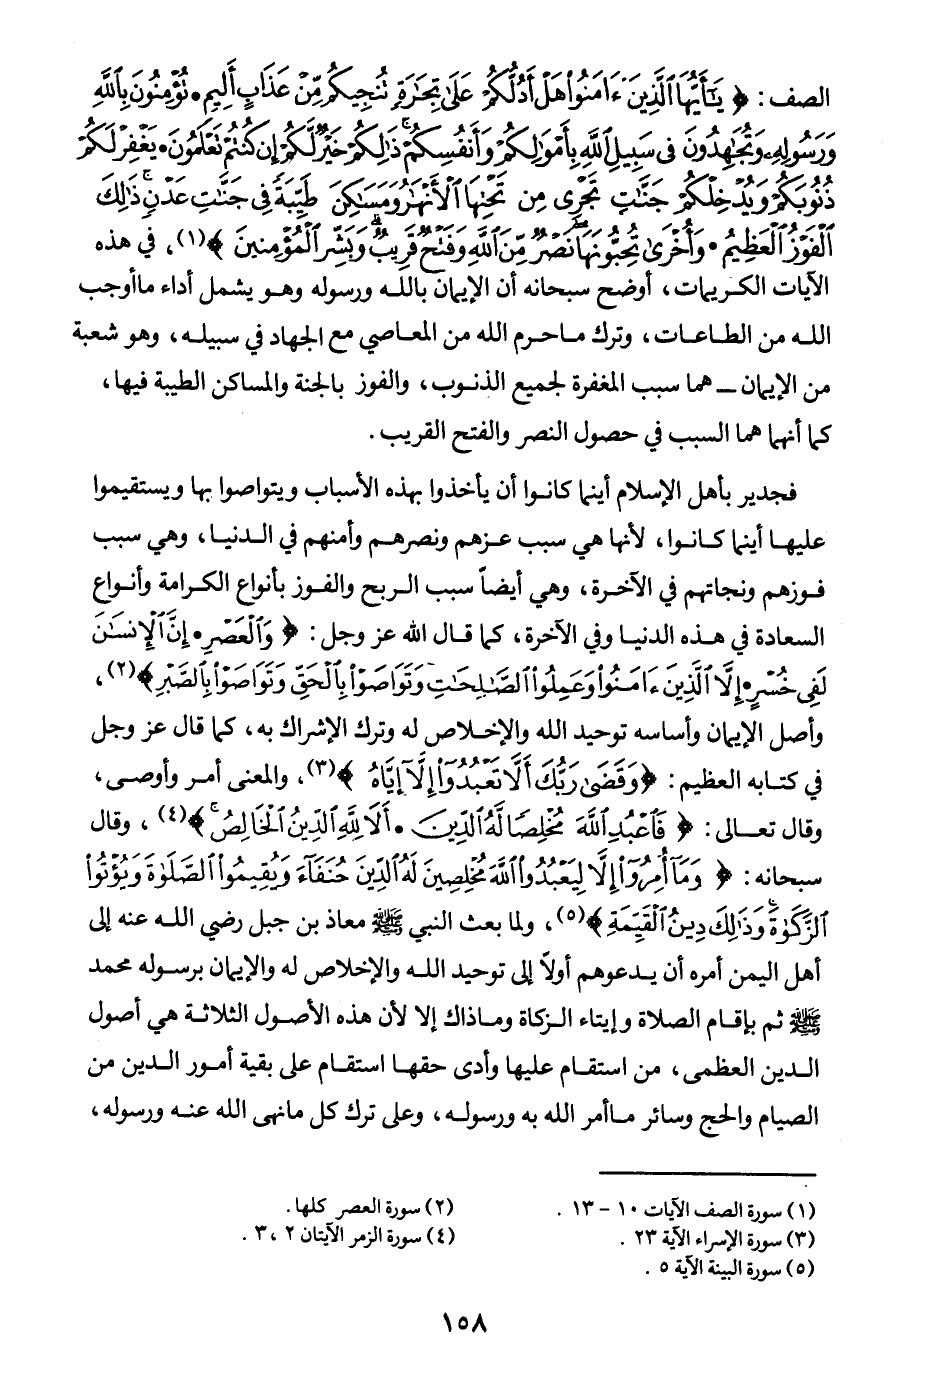 الصف : ﴿ يَـٰٓأَيُّهَا ٱلَّذِينَ ءَامَنُوا۟ هَلْ أَدُلُّكُمْ عَلَىٰ تِجَـٰرَةٍ تُنجِيكُم مِّنْ عَذَابٍ أَلِيمٍ • تُؤْمِنُونَ بِٱللَّهِ
وَرَسُولِهِۦ وَتُجَـٰهِدُونَ فِى سَبِيلِ ٱللَّهِ بِأَمْوَٰلِكُمْ وَأَنفُسِكُمْ ۚ ذَٰلِكُمْ خَيْرٌ لَّكُمْ إِن كُنتُمْ تَعْلَمُونَ • يَغْفِرْ لَكُمْ
ذُنُوبَكُمْ وَيُدْخِلْكُمْ جَنَّـٰتٍ تَجْرِى مِن تَحْتِهَا ٱلْأَنْهَـٰرُ وَمَسَـٰكِنَ طَيِّبَةً فِى جَنَّـٰتِ عَدْنٍ ۚ ذَٰلِكَ
ٱلْفَوْزُ ٱلْعَظِيمُ • وَأُخْرَىٰ تُحِبُّونَهَا ۖ نَصْرٌ مِّنَ ٱللَّهِ وَفَتْحٌ قَرِيبٌ ۗ وَبَشِّرِ ٱلْمُؤْمِنِينَ ﴾(١)، في هذه
الآيات الكريمات، أوضح سبحانه أن الإيمان بالله ورسوله وهو يشمل أداء ماأوجب
الله من الطاعات، وترك ماحرم الله من المعاصي مع الجهاد في سبيله، وهو شعبة
من الإيمان ــ هما سبب المغفرة لجميع الذنوب، والفوز بالجنة والمساكن الطيبة فيها،
كما أنهما هما السبب في حصول النصر والفتح القريب .
فجدير بأهل الإسلام أينما كانوا أن يأخذوا بهذه الأسباب ويتواصوا بها ويستقيموا
عليها أينما كانوا، لأنها هي سبب عزهم ونصرهم وأمنهم في الدنيا، وهي سبب
فوزهم ونجاتهم في الآخرة، وهي أيضاً سبب الربح والفوز بأنواع الكرامة وأنواع
السعادة في هذه الدنيا وفي الآخرة، كما قال الله عز وجل : ﴿ وَٱلْعَصْرِ • إِنَّ ٱلْإِنسَـٰنَ
لَفِى خُسْرٍ • إِلَّا ٱلَّذِينَ ءَامَنُوا۟ وَعَمِلُوا۟ ٱلصَّـٰلِحَـٰتِ وَتَوَاصَوْا۟ بِٱلْحَقِّ وَتَوَاصَوْا۟ بِٱلصَّبْرِ ﴾(٢)،
وأصل الإيمان وأساسه توحيد الله والإخلاص له وترك الإشراك به، كما قال عز وجل
في كتابه العظيم : ﴿ وَقَضَىٰ رَبُّكَ أَلَّا تَعْبُدُوٓا۟ إِلَّآ إِيَّاهُ ﴾(٣)، والمعنى أمر وأوصى،
وقال تعالى : ﴿ فَٱعْبُدِ ٱللَّهَ مُخْلِصًا لَّهُ ٱلدِّينَ • أَلَا لِلَّهِ ٱلدِّينُ ٱلْخَالِصُ ۚ ﴾(٤)، وقال
سبحانه : ﴿ وَمَآ أُمِرُوٓا۟ إِلَّا لِيَعْبُدُوا۟ ٱللَّهَ مُخْلِصِينَ لَهُ ٱلدِّينَ حُنَفَآءَ وَيُقِيمُوا۟ ٱلصَّلَوٰةَ وَيُؤْتُوا۟
ٱلزَّكَوٰةَ ۚ وَذَٰلِكَ دِينُ ٱلْقَيِّمَةِ ﴾(٥)، ولما بعث النبي ﷺ معاذ بن جبل رضي الله عنه إلى
أهل اليمن أمره أن يدعوهم أولاً إلى توحيد الله والإخلاص له والإيمان برسوله محمد
ﷺ ثم بإقام الصلاة وإيتاء الزكاة وماذاك إلا لأن هذه الأصول الثلاثة هي أصول
الدين العظمى، من استقام عليها وأدى حقها استقام على بقية أمور الدين من
الصيام والحج وسائر ماأمر الله به ورسوله، وعلى ترك كل مانهى الله عنه ورسوله،
(١) سورة الصف الآيات ١٠ – ١٣ .
(٢) سورة العصر كلها .
(٣) سورة الإسراء الآية ٢٣ .
(٤) سورة الزمر الآيتان ٢ ، ٣ .
(٥) سورة البينة الآية ٥ .
١٥٨